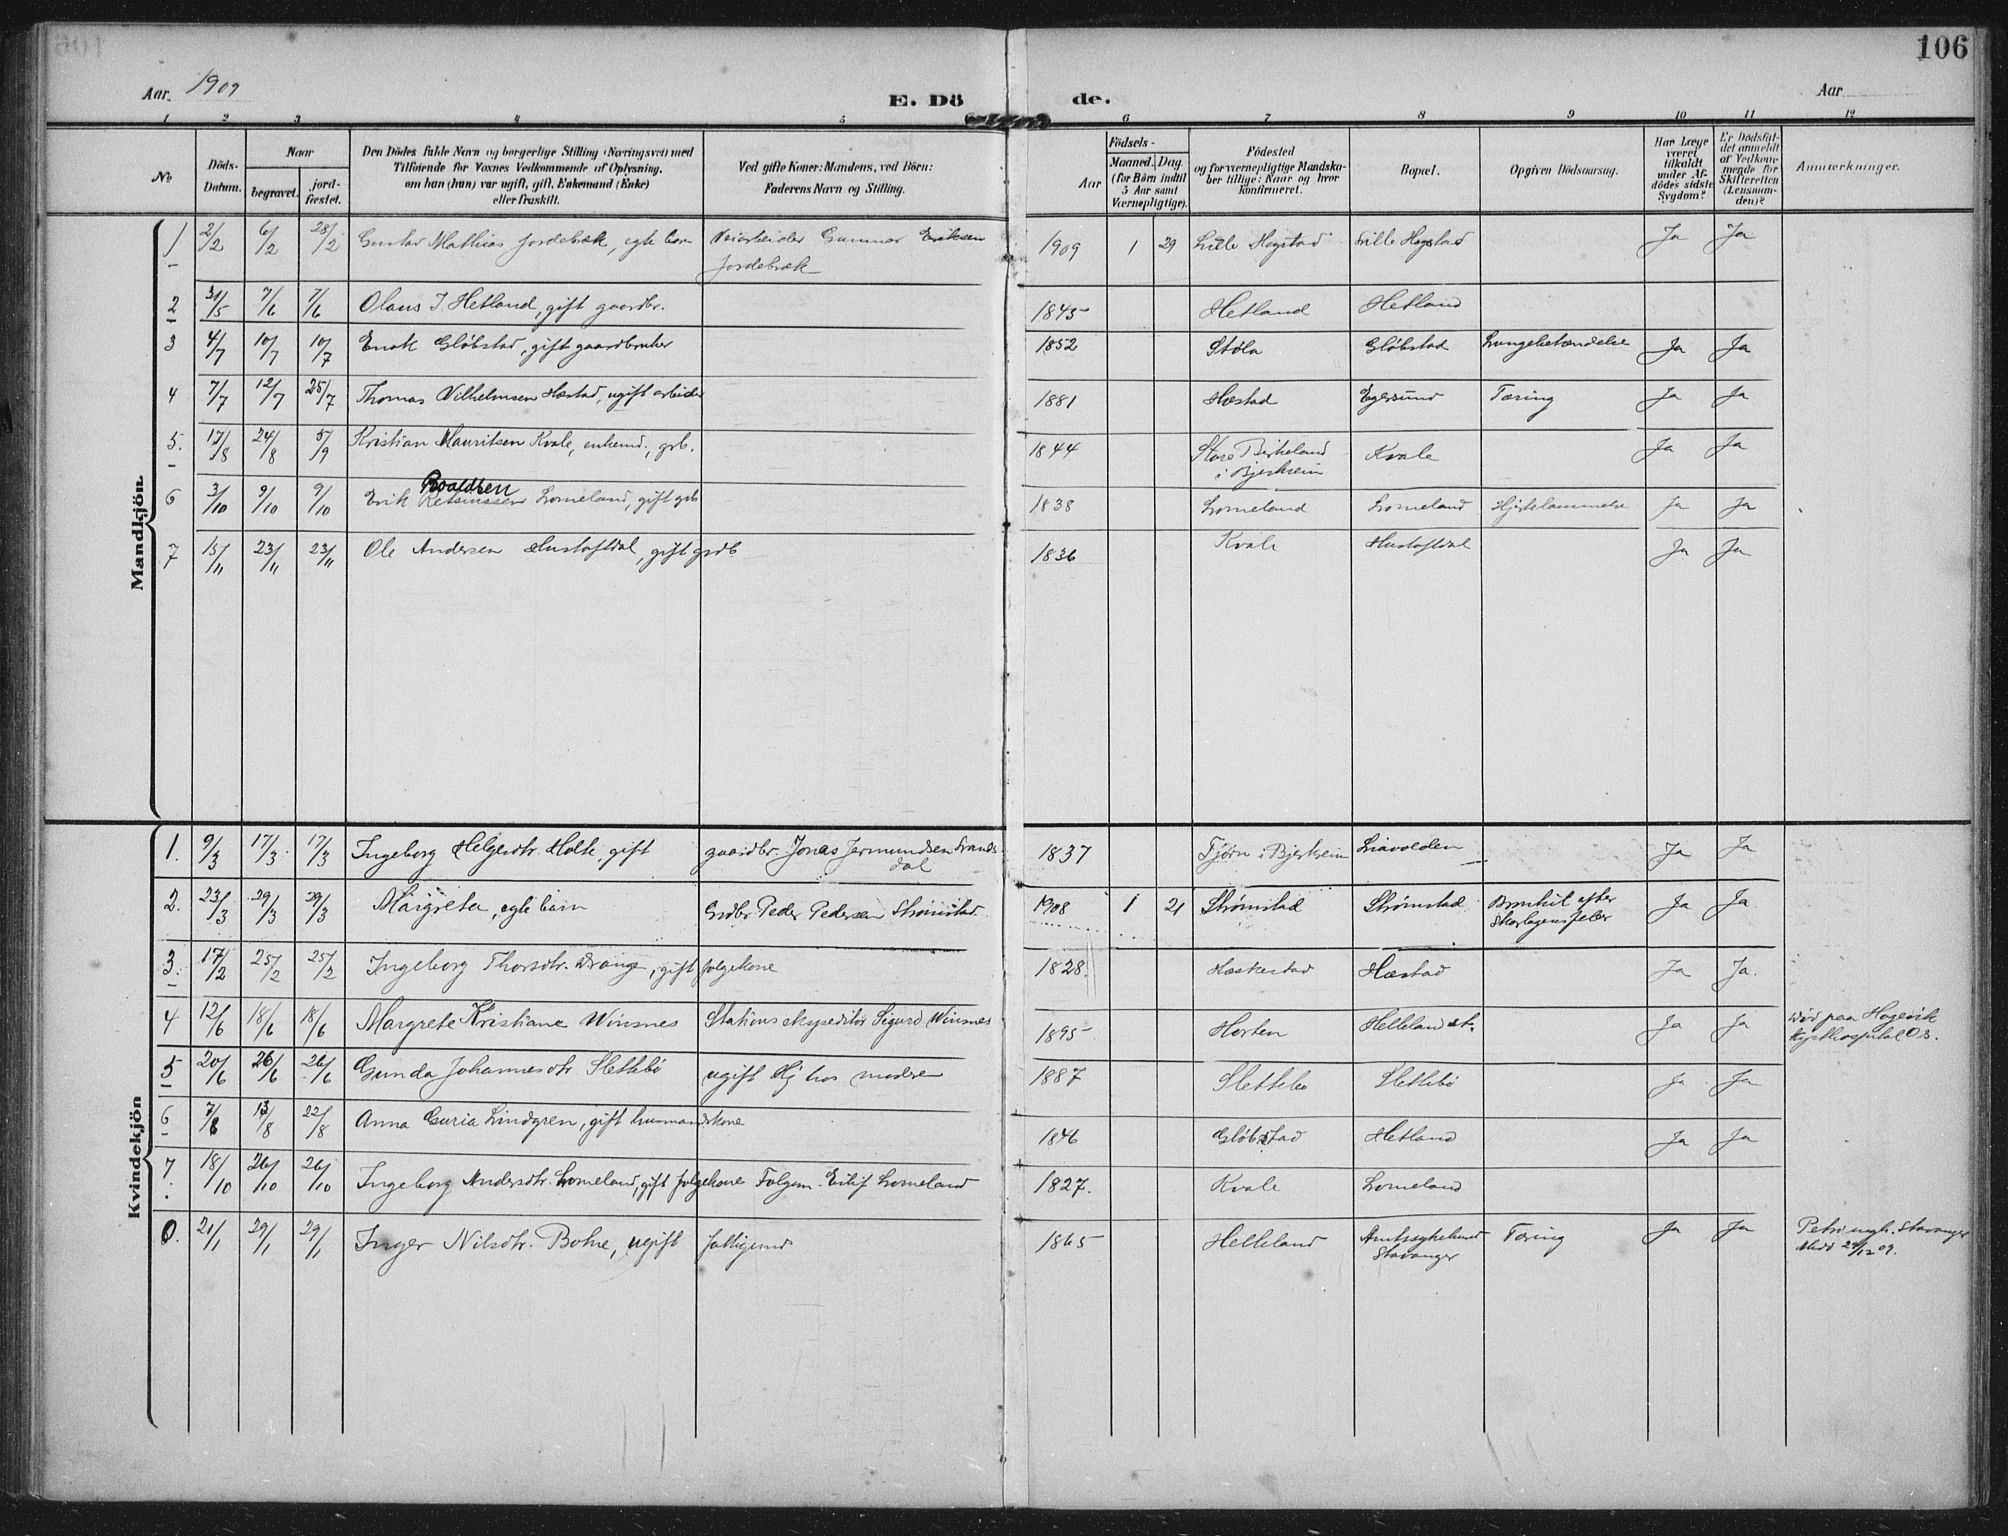 106
Aar. 1909
E. Dö de.
Aar
1 2 3 4 5 6 7 8 9 10 11 12
No
Döds-Datum.
Naar
begravet.
jord-fæstet.
Den Dödes fulde Navn og borgerlige Stilling (Næringsvei) med
Tilföiende for Voxnes Vedkommende af Oplysning,
om han (hun) var ugift, gift, Enkemand (Enke)
eller fraskilt.
Ved gifte Koner: Mandens, ved Börn:
Faderens Navn og Stilling.
Födsels-
Aar
Maaned. Dag
(for Börn indtil
5 Aar samt
Værnepligtige).
Födested
og for værnepligtige Mandska-
ber tillige: Naar og hvor
konfirmeret.
Bopæl.
Opgiven Dödsaarsag.
Har Læge
været
tilkaldt
under Af-
dödes sidste
Sygdom?
Er Dödsfal-
det anmeldt
af Vedkom-
mende for
Skifteretten
(Lensman-
den)?
Anmærkninger.
Mandkjön.
1 2/2 6/2 28/2 Gustav Mathias Jordebræk, egte barn Veiarbeider Gunnar Eriksen 1909 1 29 Lille Hegstad Lille Hegstad Ja Ja
Jordebræk
2 31/5 7/6 7/6 Olaus J. Hetland, gift gaardbr. 1845 Hetland Hetland
3 4/7 10/7 10/7 Enok Gløbstad, gift gaardbruker 1852 Støla Gløbstad Lungebetændelse Ja Ja
4 7/7 12/7 25/7 Thomas Vilhelmsen Hæstad, ugift arbeider 1881 Hæstad Egersund Tæring Ja Ja
5. 17/8 24/8 5/9 Kristian Mauritsen Kvale, enkemd., grb. 1844 Store Birkeland Kvale Ja Ja
i Bjerkreim
Roaldsen
6 3/10 9/10 9/10 Erik Lomeland, gift grb 1838 Lomeland Lomeland Hjertelammelse Ja Ja
7 15/11 23/11 23/11 Ole Andersen Hustoftdal, gift grdb 1836 Kvale Hustoftdal Ja Ja
Kvindekjön
1. 9/3 17/3 17/3 Ingeborg Helgesdtr. Holte, gift gaardbr. Jonas Jermundsen Drands- 1837 Tjørn i Bjerkreim Liavolden Ja Ja
dal
2. 23/3 29/3 29/3 Margreta, egte barn Grdbr Peder Pedersen Strømstad 1908 1 21 Strømstad Strømstad Bronkit efter Ja Ja
Skarlagensfeber
3. 17/2 25/2 25/2 Ingeborg Thorsdtr. Drange, gift folgekone 1828. Hæskestad Hæstad Ja Ja.
4 12/6 18/6 18/6 Margrete Kristiane Winsnes Stationsekspeditör Sigurd Winsnes 1895 Horten Helleland st. Ja Ja Död paa Hagevik
Kysthospital Os.
5 20/6 26/6 26/6 Gunda Johannesdtr. Slettebö ugift Hj hos moderen 1887 Slettebö Slettebö Ja Ja
6 7/8 13/8 22/8 Anna Guria Lindgren, gift husmandskone 1846 Gløbstad Hetland Ja Ja
7. 18/10 26/10 26/10 Ingeborg Andersdtr. Lomeland, gift folgekone Folgem. Eilif Lomeland 1827. Kvale Lomeland
0. 21/1 29/1 29/1 Inger Nilsdtr. Bohe, ugift fattiglemd 1865 Helleland Amtssykehuset Tæring Ja Ja Petri mgh. Stavanger
Stavanger Medd 24/12 09.